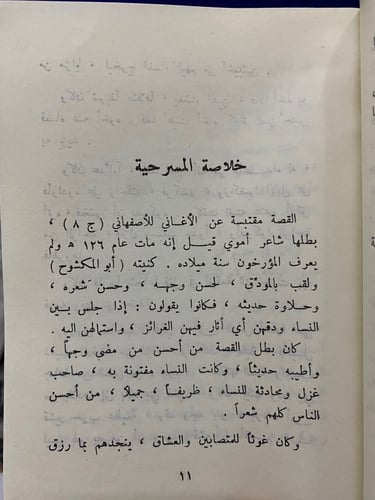 خلاصة المسرحية
القصة مقتبسة عن الأغاني للأصفهاني ( ج ٨ ) ،
بطلها شاعر أموي قيـل إنه مات عام ١٢٦ ه ولم
يعرف المؤرخون سنة ميلاده . كنيته ( أبو المكشوح )
ولقب بالمودّق ، لحسن وجهـه ، وحسن شعره ،
وحلاوة حديثه ، فكانوا يقولون : إذا جلس بـين
النساء ودقهن أي أثار فيهن الغرائز ، واستمالهن اليه .
كان بطل القصة من أحسن من مضى وجهاً ،
وأطيبه حديثاً ، وكانت النساء مفتونة به ، صاحب
غزل ومحادثة للنساء ، ظريفـاً ، جميلا ، من أحسن
الناس كلهم شعراً .
وكان غوثاً للمتصابين والعشاق ، ينجدهم بما رزق
١١